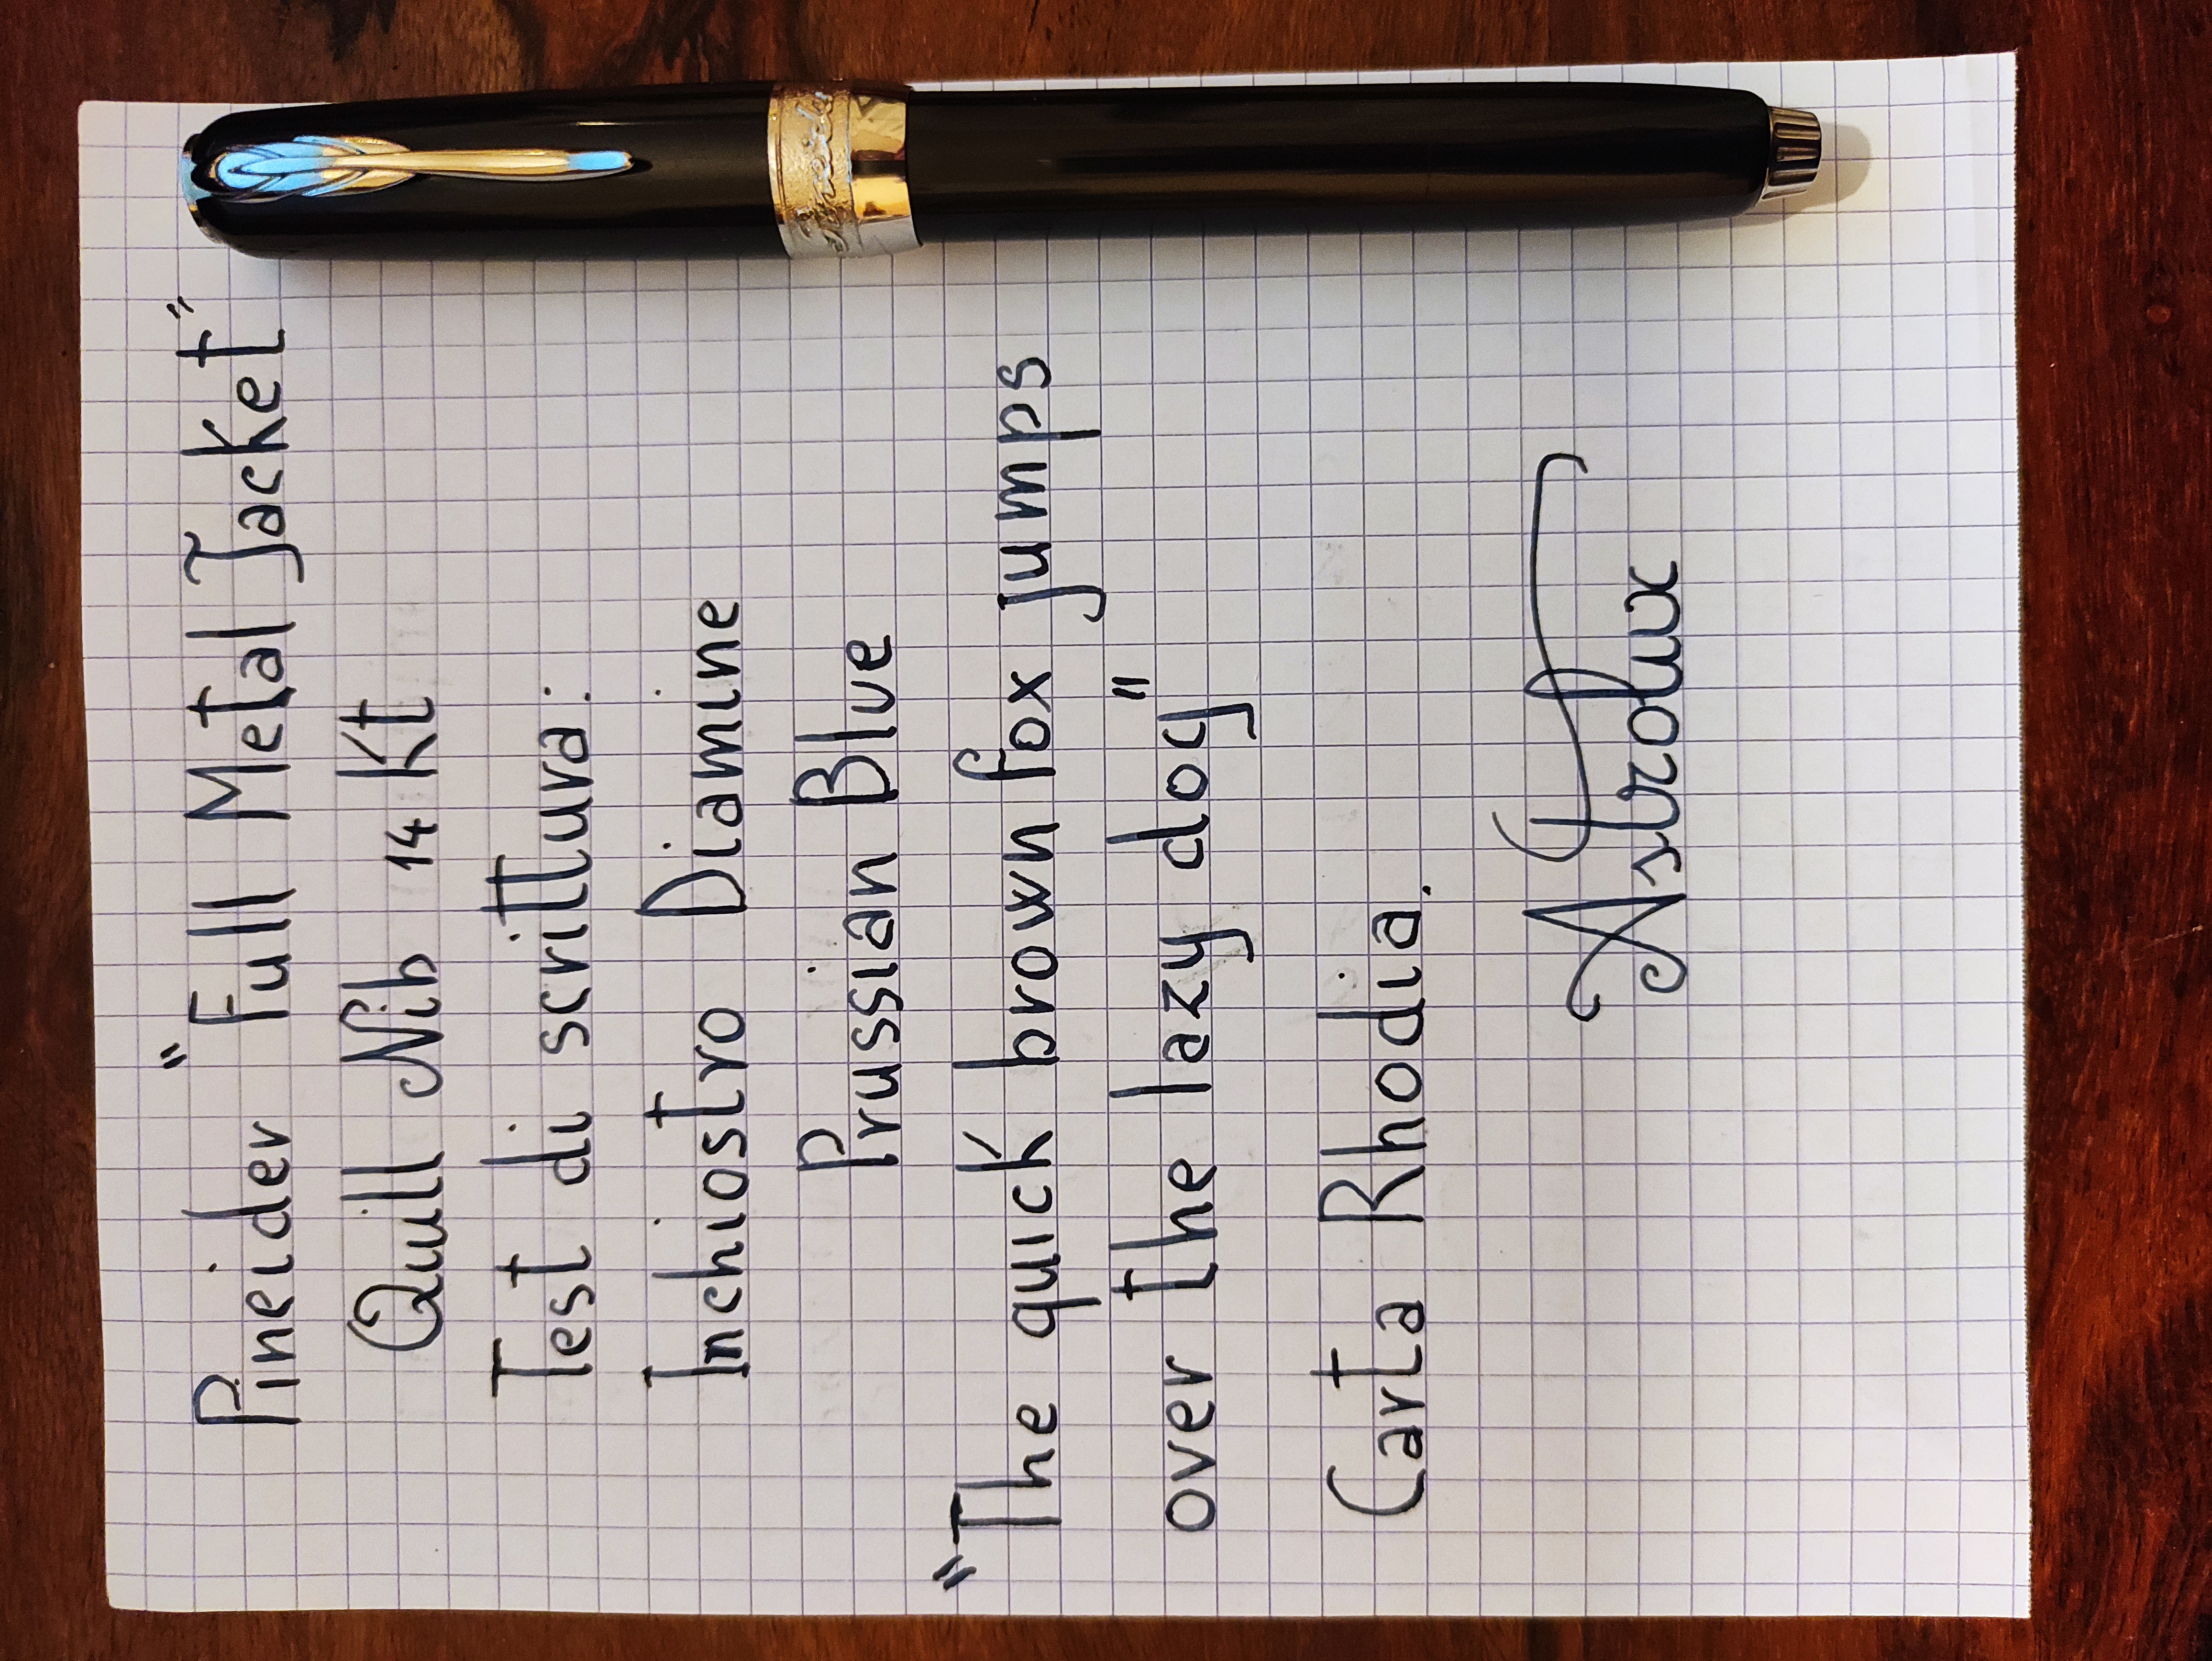 Pineider "Full Metal Jacket"
Quill Nib 14 Kt
Test di scrittura:
Inchiostro Diamine
Prussian Blue
"The quick brown fox jumps
over the lazy dog"
Carta Rhodia.
Astrolux
Pineider